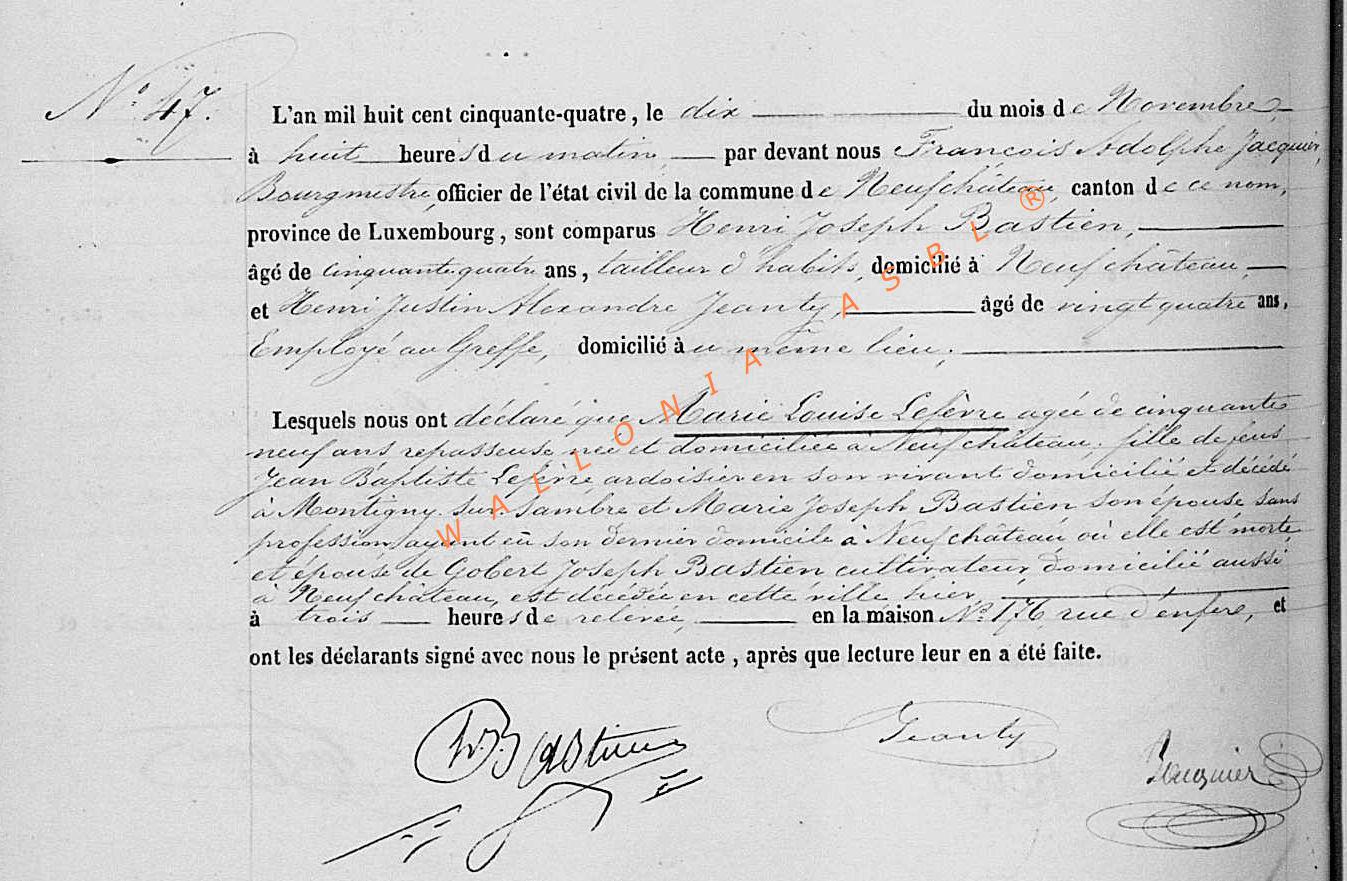 N° 47.
L'an mil huit cent cinquante-quatre, le dix du mois de Novembre,
à huit heures du matin, par devant nous François Adolphe Jacquier,
Bourgmestre, officier de l'état civil de la commune de Neufchâteau, canton de ce nom,
province de Luxembourg, sont comparus Henri Joseph Bastien,
âgé de cinquante quatre ans, tailleur d'habits, domicilié à Neufchâteau,
et Henri Justin Alexandre Jeanty, âgé de vingt quatre ans,
Employé au Greffe, domicilié au même lieu;
Lesquels nous ont déclaré que Marie Louise Lefèvre agée de cinquante
neuf ans repasseuse née et domiciliée à Neufchâteau, fille de feus
Jean Baptiste Lefèvre, ardoisier en son vivant domicilié et décédé
à Montigny sur Sambre et Marie Joseph Bastien son épouse sans
profession, ayant eu son dernier domicile à Neufchâteau où elle est morte
et épouse de Gobert Joseph Bastien cultivateur, domicilié aussi
à Neufchâteau, est décédée en cette ville hier,
à trois heures de relevée, en la maison N° 176 rue d'enfer, et
ont les déclarants signé avec nous le présent acte, après que lecture leur en a été faite.
H. J. Bastien
Jeanty
Jacquier
WALLONIA ASBL ®